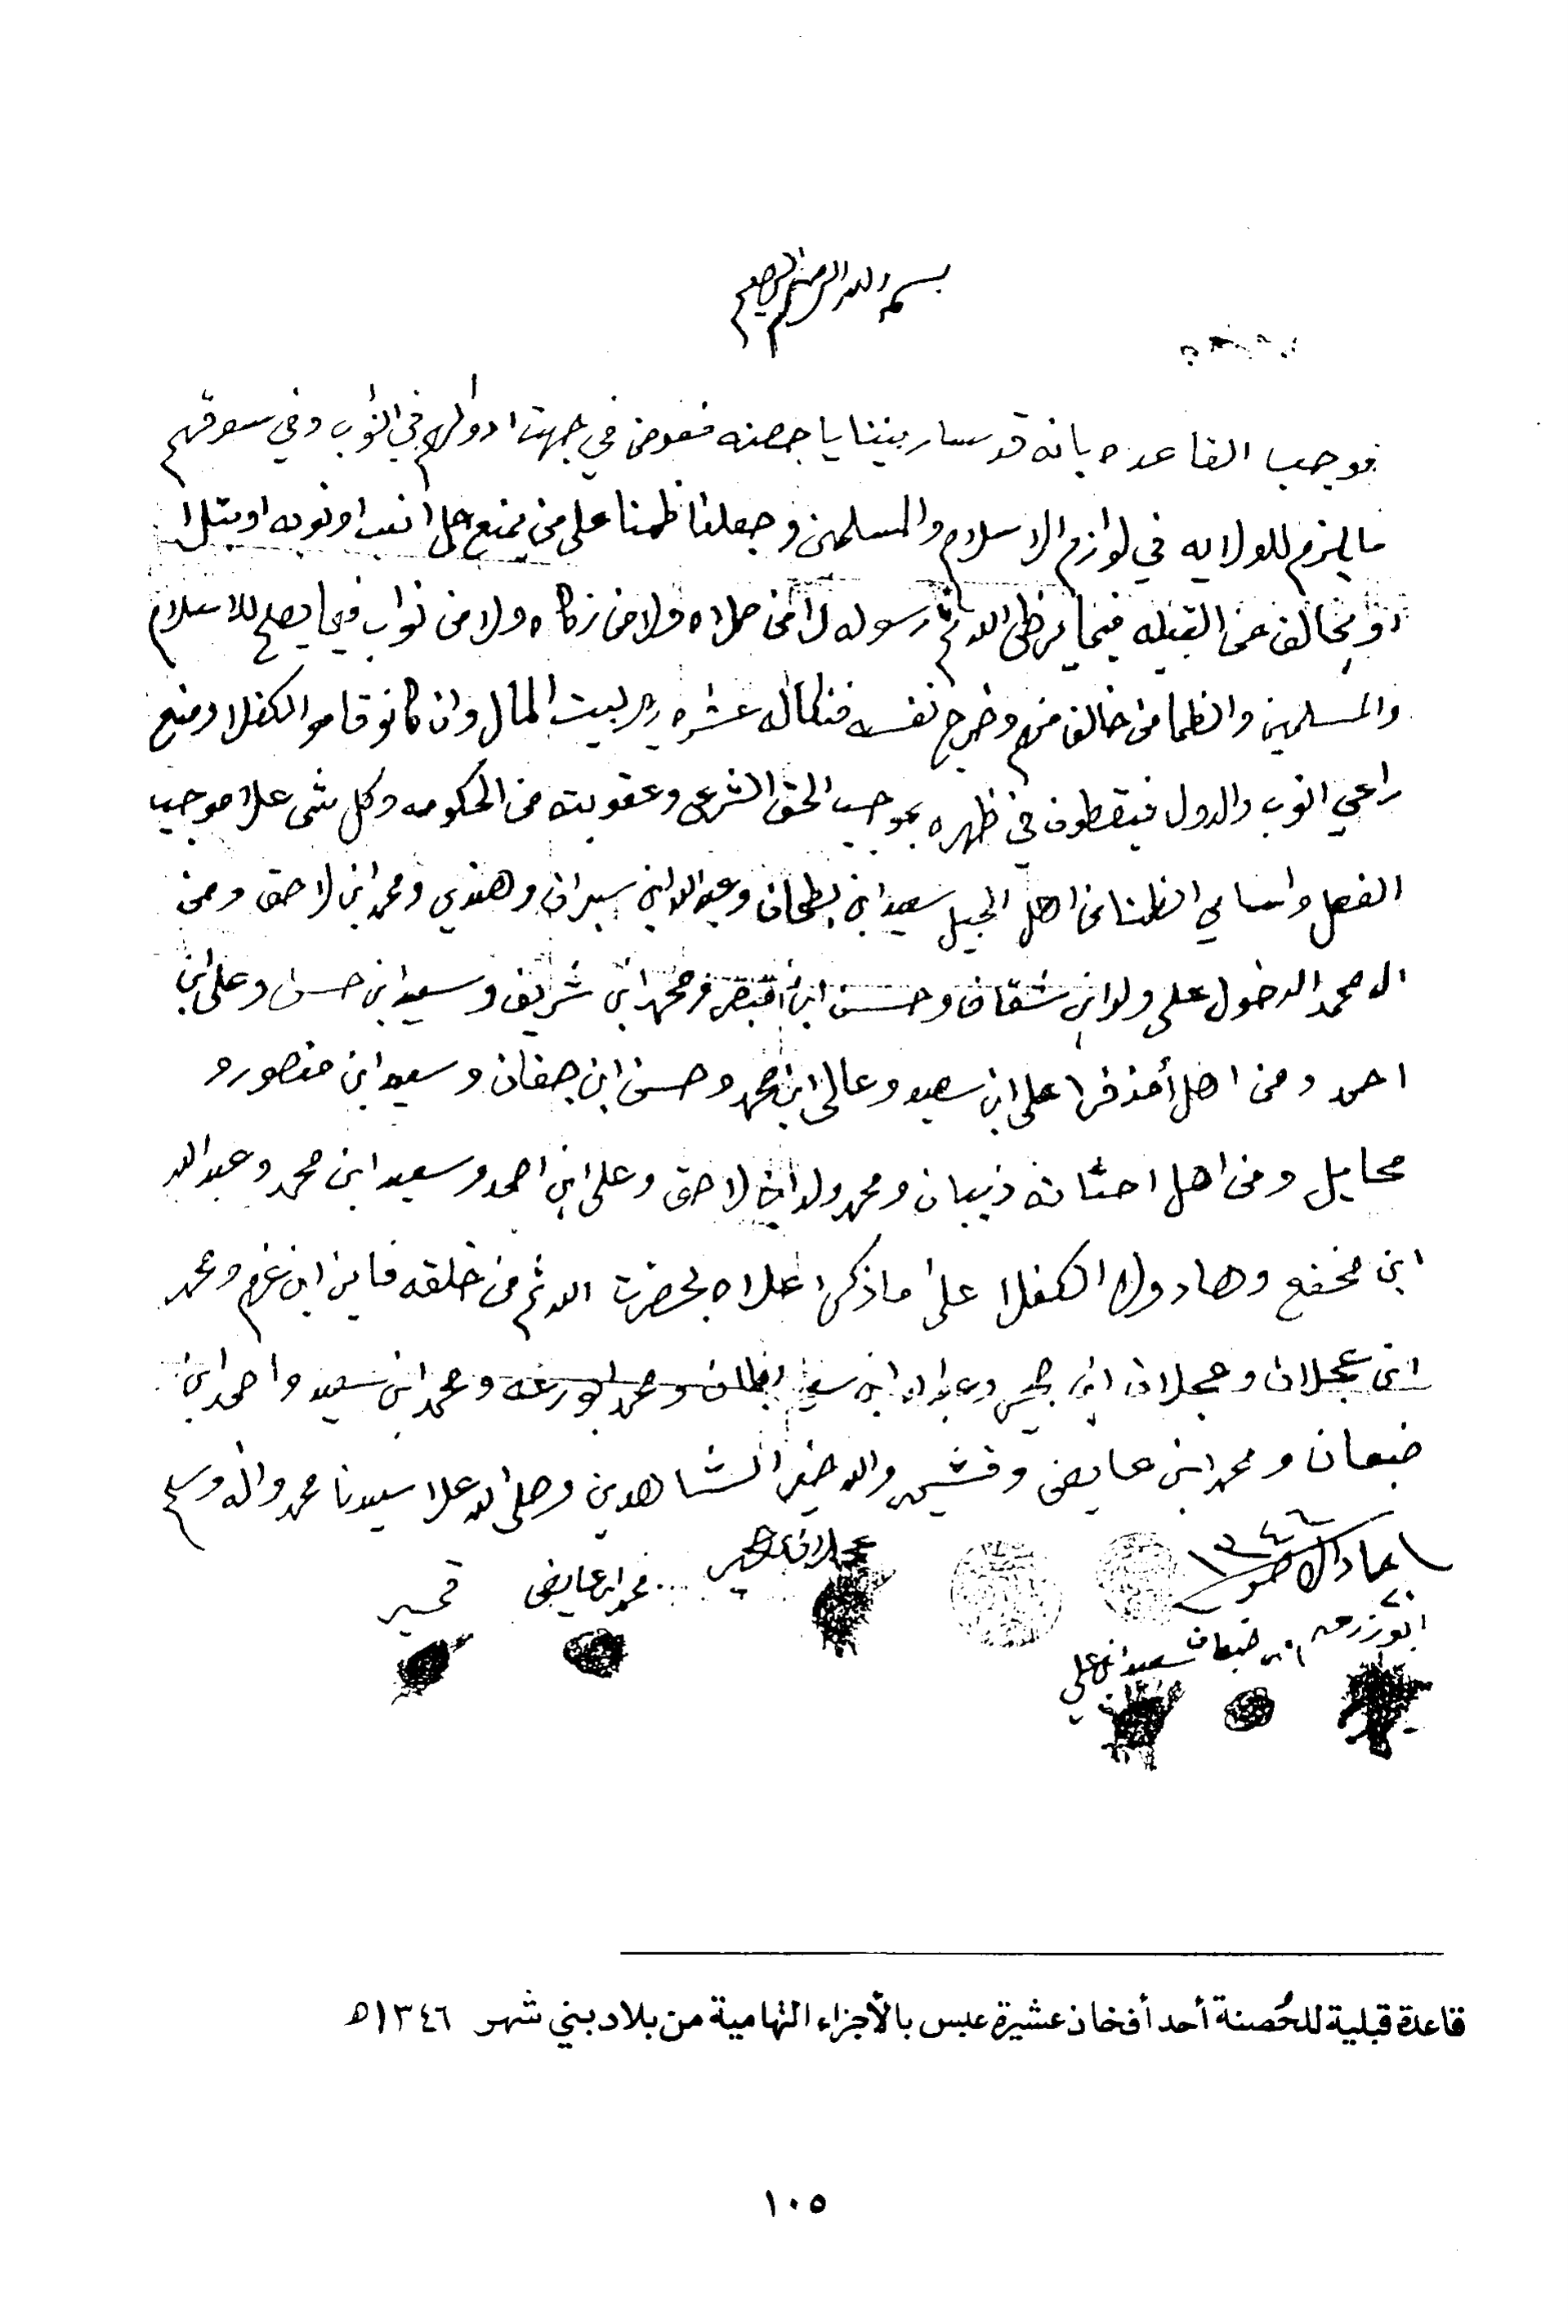 بسم الله الرحمن الرحيم
موجب القاعده بانه قد سار بيننا يا حصنه في جهت ادوالهم في النواب وفي سوقهم
ما يلزم للولايه في لوازم الاسلام والمسلمين وجعلنا ظمنا على من يمنع
او يخالف من القبيله فيما يرظي الله ثم رسوله لا من صلاه ولا من زكاه ولا من نواب فيما يصلح للاسلام
والمسلمين والظما من خالف منهم وخرج نفسه فنكاله عشره ريال لبيت المال وان كانو قامو الكفلا ومنع
راعي النوب والدول فيقطون في ظهره بموجب الحق الشرعي وعقوبته من الحكومه وكل شي علا موجب
الفصل واسامي الظمنا من اهل الجبل سعيد ابن بطحان وعبدالله ابن سبران وهندي ومحمد ابن لاحق ومن
ال محمد الدخول علي ولد ابن شقاف وحسن ابن ومحمد ابن شريف وسعيد ابن حسن وعلي ابن
احمد ومن اهل علي ابن سعيد وعالي ابن محمد وحسن ابن جفان وسعيد ابن منصور و
محايل ومن اهل ذيبان ومحمد ولد ابن لاحق وعلي ابن احمد وسعيد ابن محمد وعبدالله
ابن مخفع وهادولا الكفلا على ما ذكر اعلاه بحضرت الله ثم من خلقه فايز ابن غرم ومحمد
ابن عجلان وعجلان ابن وعبدالله ابن سعيد ومحمد ابو زرعه ومحمد ابن سعيد واحمد ابن
ضبعان ومحمد ابن عايض وقشير والله خير الشاهدين وصلى الله علا سيدنا محمد واله وسلم
١٣٤٦
ابو زرعه ابن ضبعان سعيد ابن علي
عجلان محمد ابن عايض
قاعدة قبلية للحُصنة أحد أفخاذ عشيرة عبس بالأجزاء التهامية من بلاد بني شهر ١٣٤٦ه
١٠٥